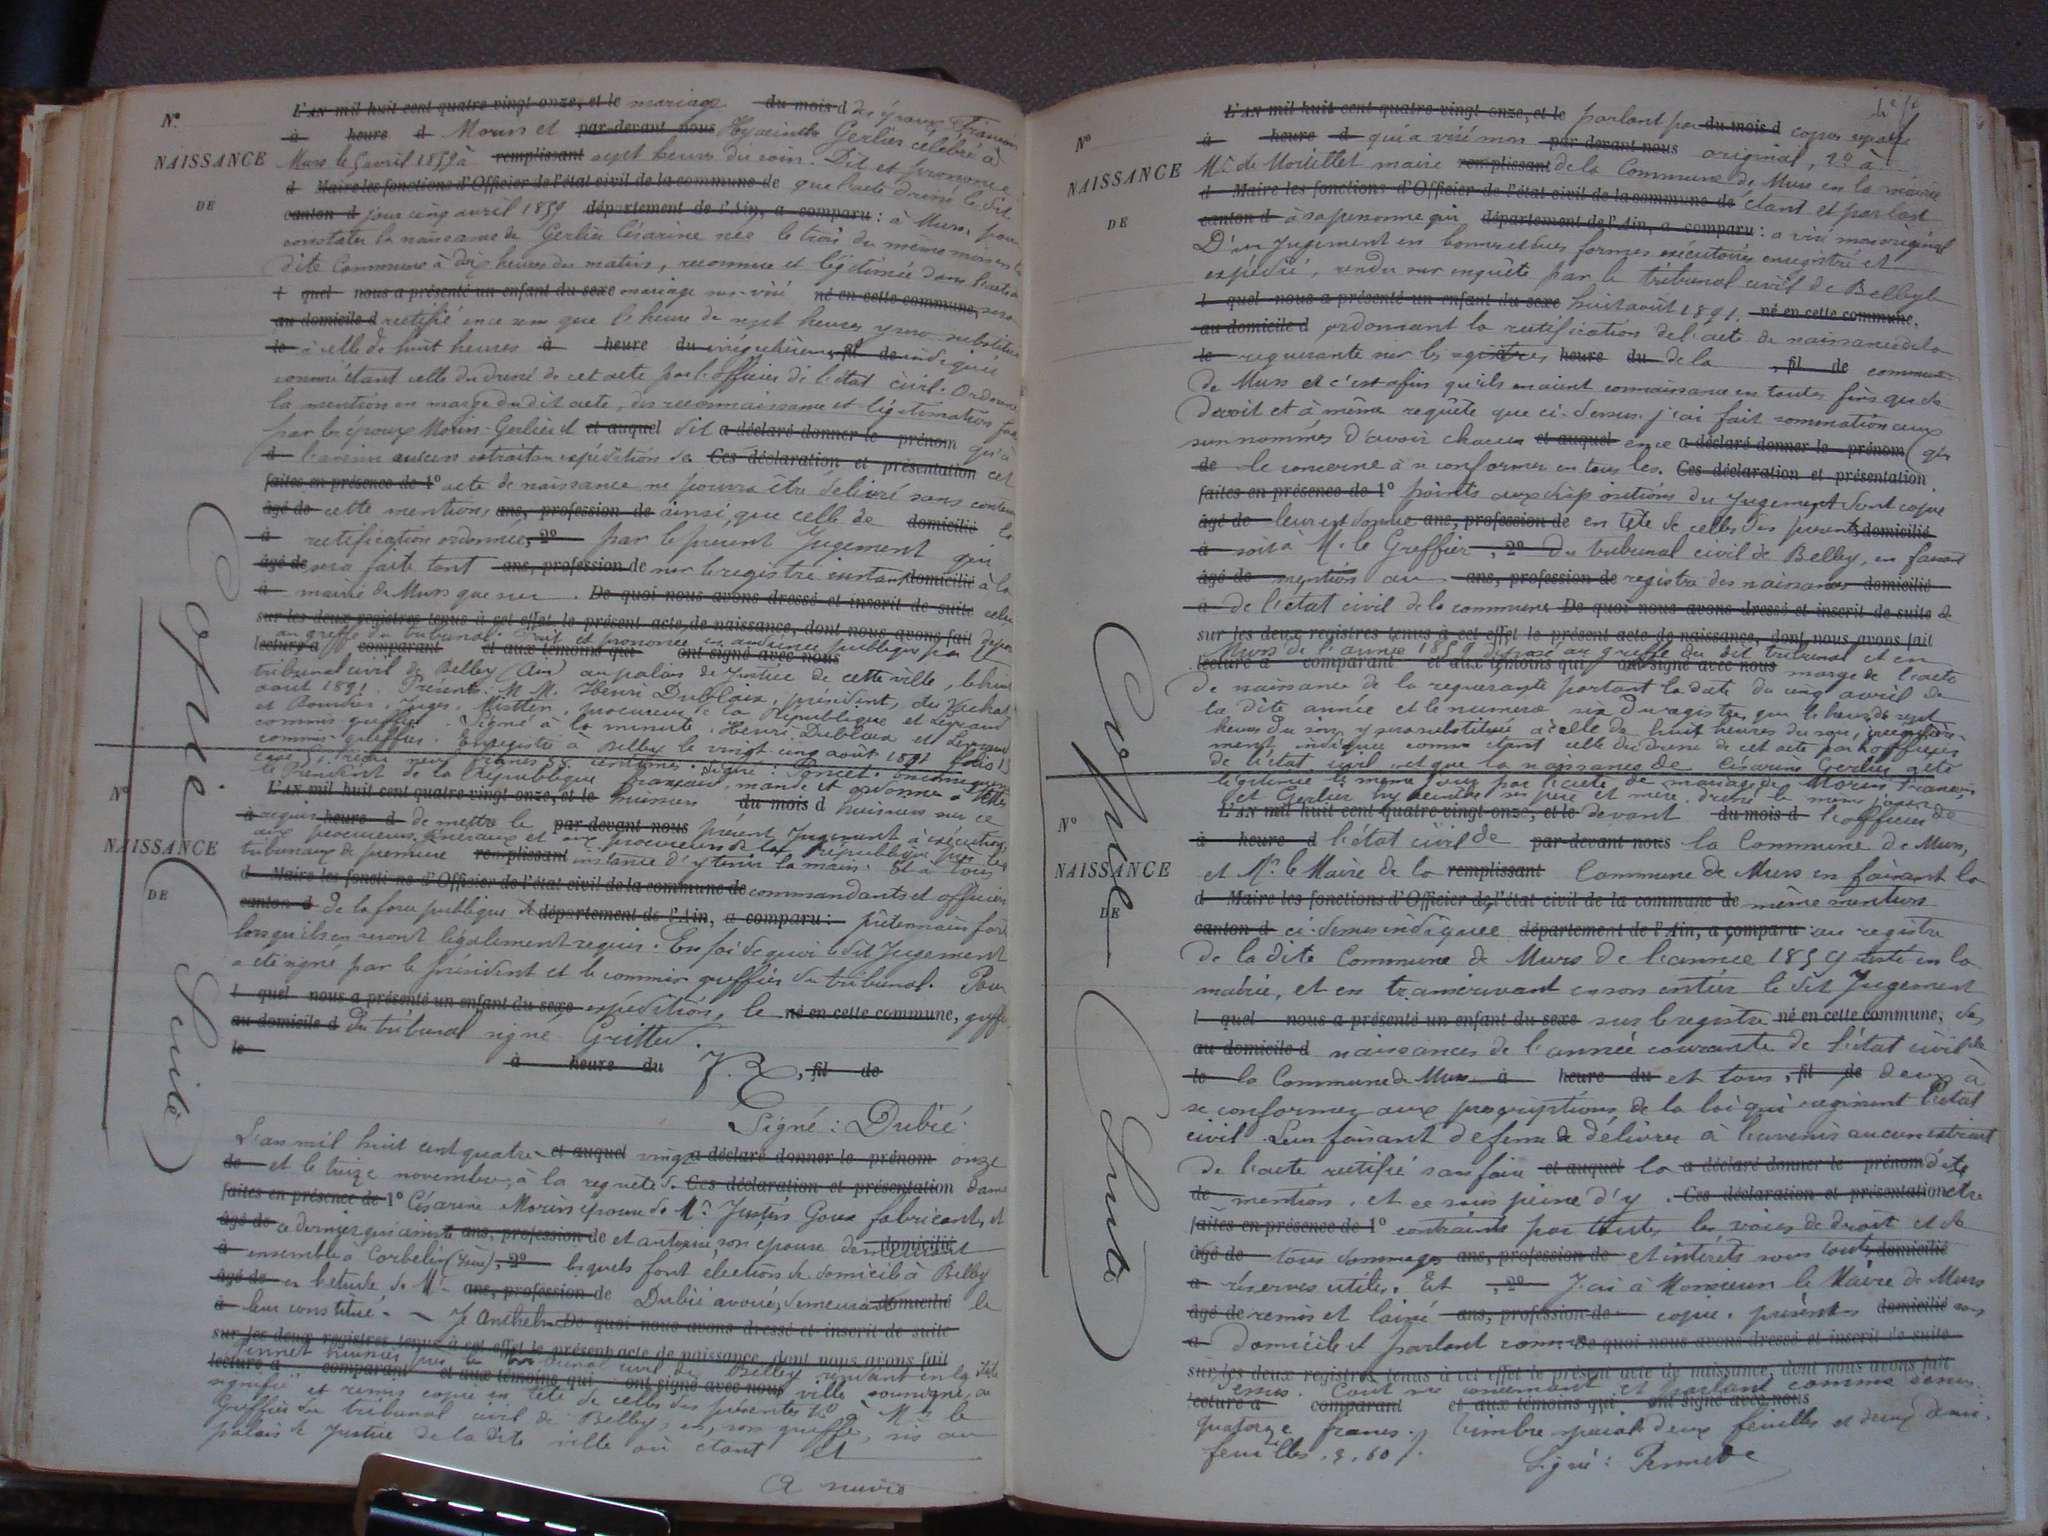 N°
NAISSANCE
DE
L'AN mil huit cent quatre vingt onze, et le mariage du mois d des époux François
à heure d Morin et par-devant nous Hyacinthe Gerlier célébré à
Murs le 5 avril 1859 à remplissant sept heures du soir. Dit et prononce
d Maire les fonctions d'Officier de l'état civil de la commune de que l'acte dressé le dit
canton d jour cinq avril 1859 département de l'Ain, a comparu : à Murs, pour
constater la naissance de Gerlier Césarine née le trois du même mois en la
dite Commune à dix heures du matin, reconnue et légitimée dans l'acte de
l quel nous a présenté un enfant du sexe mariage sus-visé né en cette commune, sera
au domicile d rectifié en ce sens que l'heure de sept heures y sera substituée
le à celle de huit heures à heure du irrégulièrement fil de indiquée
comme étant celle du dressé de cet acte par l'officier de l'état civil. Ordonne
la mention en marge du dit acte, des reconnaissance et légitimation faite
par les époux Morin-Gerlier et et auquel dit a déclaré donner le prénom qu'à
à l'avenir aucun extrait ou expédition de Ces déclaration et présentation cet
faites en présence de 1° acte de naissance ne pourra être délivré sans contenir
âgé de cette mention, ans, profession de ainsi que celle de domicilié la
à rectification ordonnée, 2° par le présent Jugement qui
âgé de sera faite tant ans, profession de sur le registre existant domicilié à la
à mairie de Murs que sur . De quoi nous avons dressé et inscrit de suite celui
sur les deux registres tenus à cet effet le présent acte de naissance, dont nous avons fait déposé
au greffe du tribunal. Fait et prononcé en audience publique par le
lecture a comparant et aux témoins qui ont signé avec nous
tribunal civil de Belley (Ain) au palais de Justice de cette ville, le huit
août 1891. Présents: M. M. Henri Dublaix, président, du
et juges, Mistler, procureur de la République et Legrand
commis greffier. Signé à la minute: Henri Dublaix et Legrand
commis-greffier. Enregistré à Belley le vingt cinq août 1891 folio 13
case reçu neuf francs centimes. Signé: Poncet. En conséquence
le Président de la République française, mande et ordonne à tous
Copie Suite
N°
NAISSANCE
DE
L'AN mil huit cent quatre vingt onze, et le huissiers du mois d huissiers sur ce
à requis heure d de mettre le par devant nous présent Jugement à exécution,
aux procureurs généraux et aux procureurs de la République près les
tribunaux de première remplissant instance d'y tenir la main. Et à tous
d Maire les fonctions d'Officier de l'état civil de la commune de commandants et officiers
canton d de la force publique de département de l'Ain, a comparu : prêter main forte
lorsqu'ils en seront légalement requis. En foi de quoi le dit Jugement
a été signé par le président et le commis greffier du tribunal. Pour
l quel nous a présenté un enfant du sexe expédition, le né en cette commune, greffier
au domicile d du tribunal signé
le
à heure du , fil de
Signé : Dubié
L'an mil huit cent quatre et auquel vingt a déclaré donner le prénom onze
de et le treize novembre, à la requête de Ces déclaration et présentation dame
faites en présence de 1° Césarine Morin épouse de Mr Justin Goux fabricant, et
âgé de ce dernier qui assiste ans, profession de et autorise son épouse demeurant domicilié
à ensemble à Corbelin (Isère), 2° lesquels font élection de domicile à Belley
âgé de en l'étude de Me ans, profession de Dubié avoué, demeurant domicilié le
à leur constitué. J'Anthelme De quoi nous avons dressé et inscrit de suite
sur les deux registres tenus à cet effet le présent acte de naissance, dont nous avons fait
huissier près le tribunal civil de Belley résidant en la dite
lecture a comparant et aux témoins qui ont signé avec nous ville soussigné, ai
signifié et remis copie en tête de celles des présentes 1° à Mr le
Greffier du tribunal civil de Belley, en son greffe, sis au
palais de Justice de la dite ville où étant et
A suivre
N°
NAISSANCE
DE
L'AN mil huit cent quatre vingt onze, et le parlant par du mois d copie séparée
à heure d qui a visé mon par-devant nous original, 2° à
Mr de maire remplissant de la Commune de Murs en la mairie
d Maire les fonctions d'Officier de l'état civil de la commune de étant et parlant
canton d à sa personne qui département de l'Ain, a comparu : a visé mon original
D'un Jugement en bonnes et dues formes exécutoires enregistré et
expédié, rendu sur enquête par le tribunal civil de Belley le
l quel nous a présenté un enfant du sexe huit août 1891, né en cette commune,
au domicile d ordonnant la rectification de l'acte de naissance de la
le requérante sur les registres heure du de la , fil de commune
de Murs et c'est afin qu'ils en aient connaissance en toutes fins que de
droit et à même requête que ci-dessus j'ai fait sommation aux
sus nommés d'avoir chacun et auquel en ce a déclaré donner le prénom qui
de le concerne à se conformer en tous les. Ces déclaration et présentation
faites en présence de 1° points aux dispositions du Jugement dont copie
âgé de leur est donnée ans, profession de en tête de celles des présentes domicilié
à soit à Mr le Greffier , 2° du tribunal civil de Belley, en faisant
âgé de mention au ans, profession de registre des naissances domicilié
à de l'état civil de la commune De quoi nous avons dressé et inscrit de suite de
sur les deux registres tenus à cet effet le présent acte de naissance, dont nous avons fait
Murs de l'année 1859 déposé au greffe du dit tribunal et en
lecture a comparant et aux témoins qui ont signé avec nous marge de l'acte
de naissance de la requérante portant la date du cinq avril de
la dite année et le numéro six du registre, que l'heure de sept
heures du soir y sera substituée à celle de huit heures du soir, irrégulière-
ment indiquée comme étant celle du dressé de cet acte par l'officier
de l'état civil et que la naissance de Césarine Gerlier a été
légitimée le même jour par l'acte de mariage de Morin François
et Gerlier Hyacinthe ses père et mère, dressé le même jour
Copie Suite
N°
NAISSANCE
DE
L'AN mil huit cent quatre vingt onze, et le devant du mois d l'officier de
à heure d l'état civil de par-devant nous la Commune de Murs,
et Mr le Maire de la remplissant Commune de Murs en faisant la
d Maire les fonctions d'Officier de l'état civil de la commune de même mention
canton d ci-dessus indiquée département de l'Ain, a comparu au registre
de la dite Commune de Murs de l'année 1859 resté en la
mairie, et en transcrivant en son entier le dit Jugement
l quel nous a présenté un enfant du sexe sur le registre né en cette commune, des
au domicile d naissances de l'année courante de l'état civil de
le la Commune de Murs à heure du et tous , fil de deux à
se conformer aux prescriptions de la loi qui régissent l'état
civil. Leur faisant défense de délivrer à l'avenir aucun extrait
de l'acte rectifié sans faire et auquel la a déclaré donner le prénom dite
de mention, et ce sous peine d'y . Ces déclaration et présentation être
faites en présence de 1° contraints par toutes les voies de droit et de
âgé de tous dommages ans, profession de et intérêts sous toutes domicilié
à réserves utiles. Et , 2° J'ai à Monsieur le Maire de Murs
âgé de remis et laissé ans, profession de copie, présentes domicilié son
à domicile et parlant comme De quoi nous avons dressé et inscrit de suite
sur les deux registres tenus à cet effet le présent acte de naissance, dont nous avons fait
dessus. Coût et parlant comme dessus
lecture a comparant et aux témoins qui ont signé avec nous
quatorze francs. Timbre spécial deux feuilles et deux demi-
feuilles . 3,60 f.
Signé :